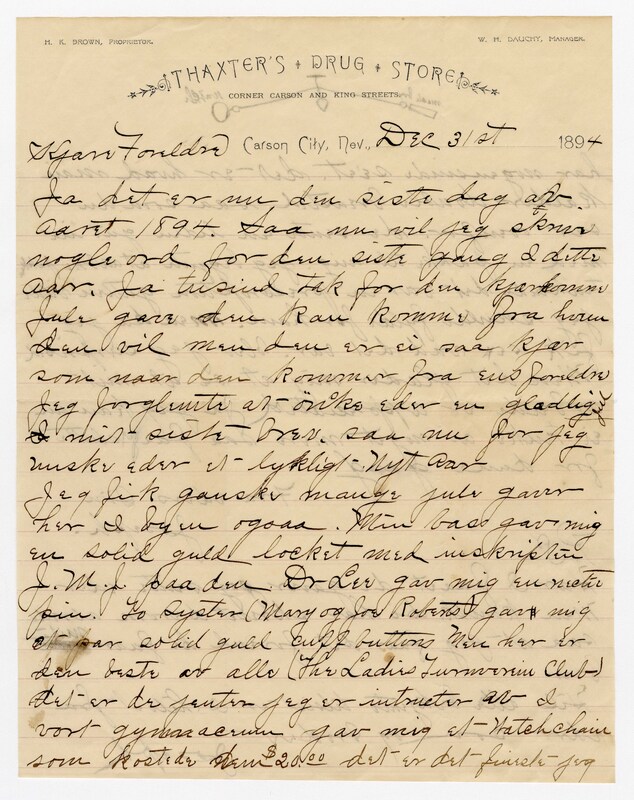 M. K. BROWN, PROPRIETOR.
W. H. DAUCHY, MANAGER.
THAXTER'S DRUG STORE
CORNER CARSON AND KING STREETS.
Carson City, Nev., Dec 31st 1894
Kjære Foreldre
Ja det er nu den siste dag af
aaret 1894. Saa nu vil jeg skrive
nogle ord for den siste gang I dette
aar. Ja tusind tak for den kjærkomne
Jule gave den kan komme fra hvem
den vil men den er ei saa kjær
som naar den kommer fra ens foreldre
Jeg forglemte at önske eder en gladlig Jul
I mit siste brev, saa nu for jeg
unske eder et lykligt Nyt aar
Jeg fik ganske mange jule gaver
her I byen ogsaa. Min bass gav mig
en solid guld locket med inskription
J. M. J. paa den. Dr Lee gav mig en
pin. To syster (Mary og Joe Roberts) gav mig
et par solid guld cuff buttons Men her er
den beste av alle (The Ladies Turnverein Club)
det er de jenter jeg er intructer av I
vort gymnaceum gav mig et Watchchain
som kostede dem $20.00 det er det fineste jeg